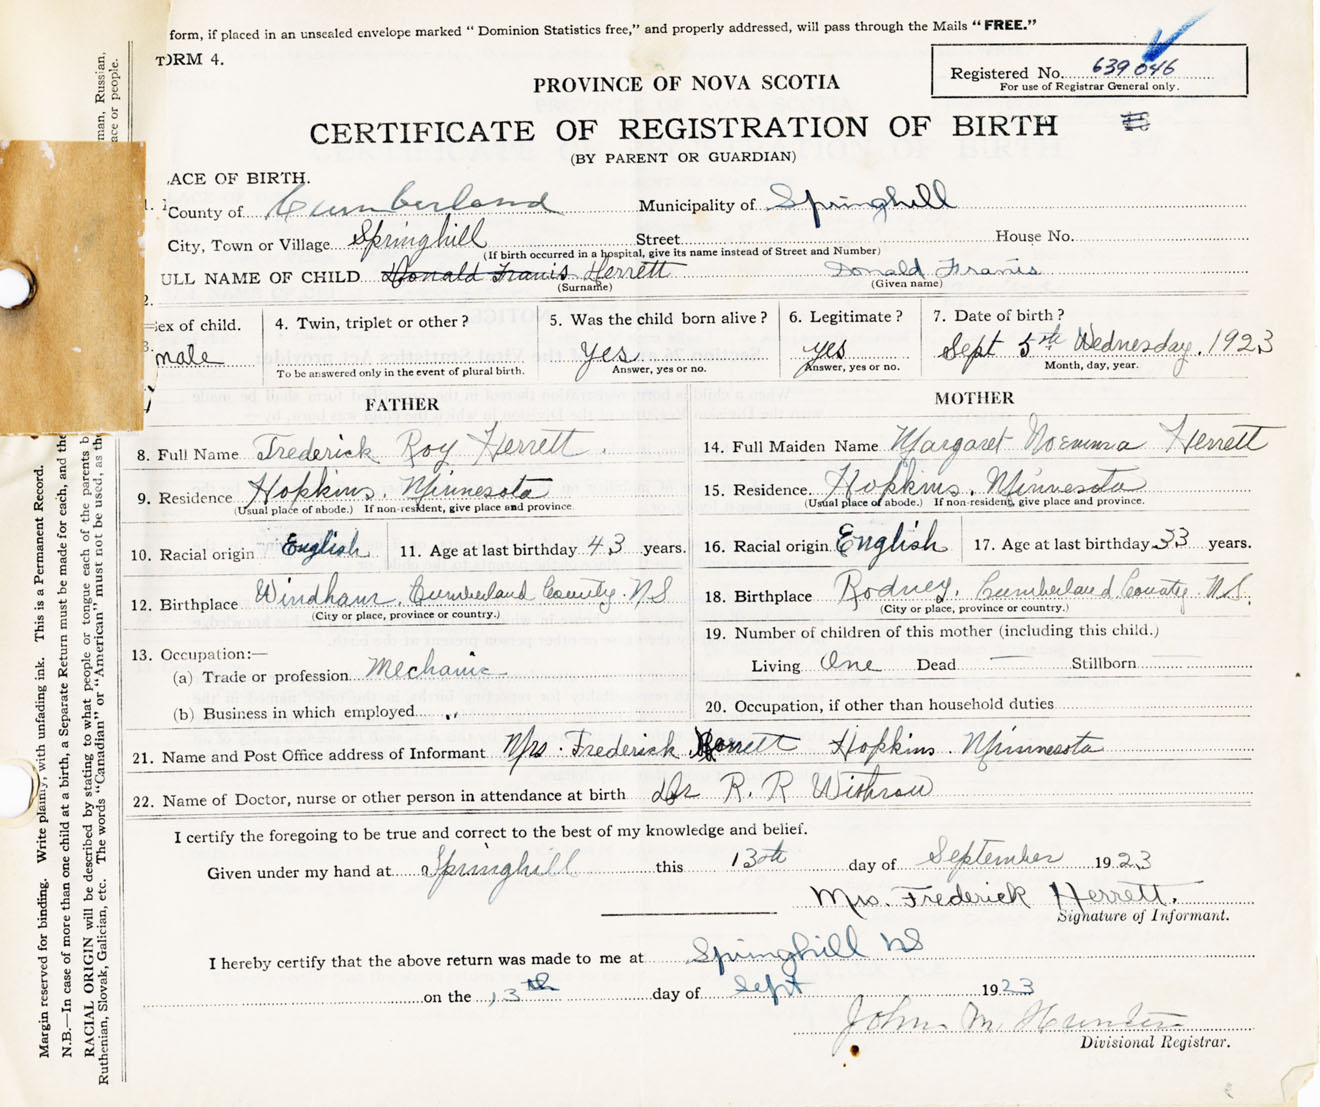 form, if placed in an unsealed envelope marked "Dominion Statistics free," and properly addressed, will pass through the Mails "FREE."
ORM 4.
Registered No. 639046
For use of Registrar General only.
PROVINCE OF NOVA SCOTIA
CERTIFICATE OF REGISTRATION OF BIRTH
(BY PARENT OR GUARDIAN)
ACE OF BIRTH.
1. County of Cumberland Municipality of Springhill
City, Town or Village Springhill Street House No.
(If birth occurred in a hospital, give its name instead of Street and Number)
2. ULL NAME OF CHILD Donald Franis Herrett Donald Franis
(Surname) (Given name)
3. ex of child. male
4. Twin, triplet or other?
To be answered only in the event of plural birth.
5. Was the child born alive? Yes
Answer, yes or no.
6. Legitimate? yes
Answer, yes or no.
7. Date of birth?
Sept 5th Wednesday. 1923
Month, day, year.
FATHER
8. Full Name Frederick Roy Herrett.
9. Residence Hopkins. Minnesota
(Usual place of abode.) If non-resident, give place and province.
10. Racial origin English 11. Age at last birthday 43 years.
12. Birthplace Windham. Cumberland County. NS
(City or place, province or country.)
13. Occupation:—
(a) Trade or profession Mechanic
(b) Business in which employed "
MOTHER
14. Full Maiden Name Margaret Noemma Herrett
15. Residence. Hopkins. Minnesota
(Usual place of abode.) If non-resident, give place and province.
16. Racial origin English 17. Age at last birthday 33 years.
18. Birthplace Rodney. Cumberland County. N.S.
(City or place, province or country.)
19. Number of children of this mother (including this child.)
Living One Dead — Stillborn —
20. Occupation, if other than household duties
21. Name and Post Office address of Informant Mrs. Frederick Herrett Hopkins. Minnesota
22. Name of Doctor, nurse or other person in attendance at birth Dr R. R
I certify the foregoing to be true and correct to the best of my knowledge and belief.
Given under my hand at Springhill this 13th day of September 1923
Mrs. Frederick Herrett.
Signature of Informant.
I hereby certify that the above return was made to me at Springhill NS
on the 13th day of Sept 1923
John M. Hunter
Divisional Registrar.
Margin reserved for binding. Write plainly, with unfading ink. This is a Permanent Record.
N.B.—In case of more than one child at a birth, a Separate Return must be made for each, and the
RACIAL ORIGIN will be described by stating to what people or tongue each of the parents b man, Russian,
Ruthenian, Slovak, Galician, etc. The words "Canadian" or "American" must not be used, as th ace or people.